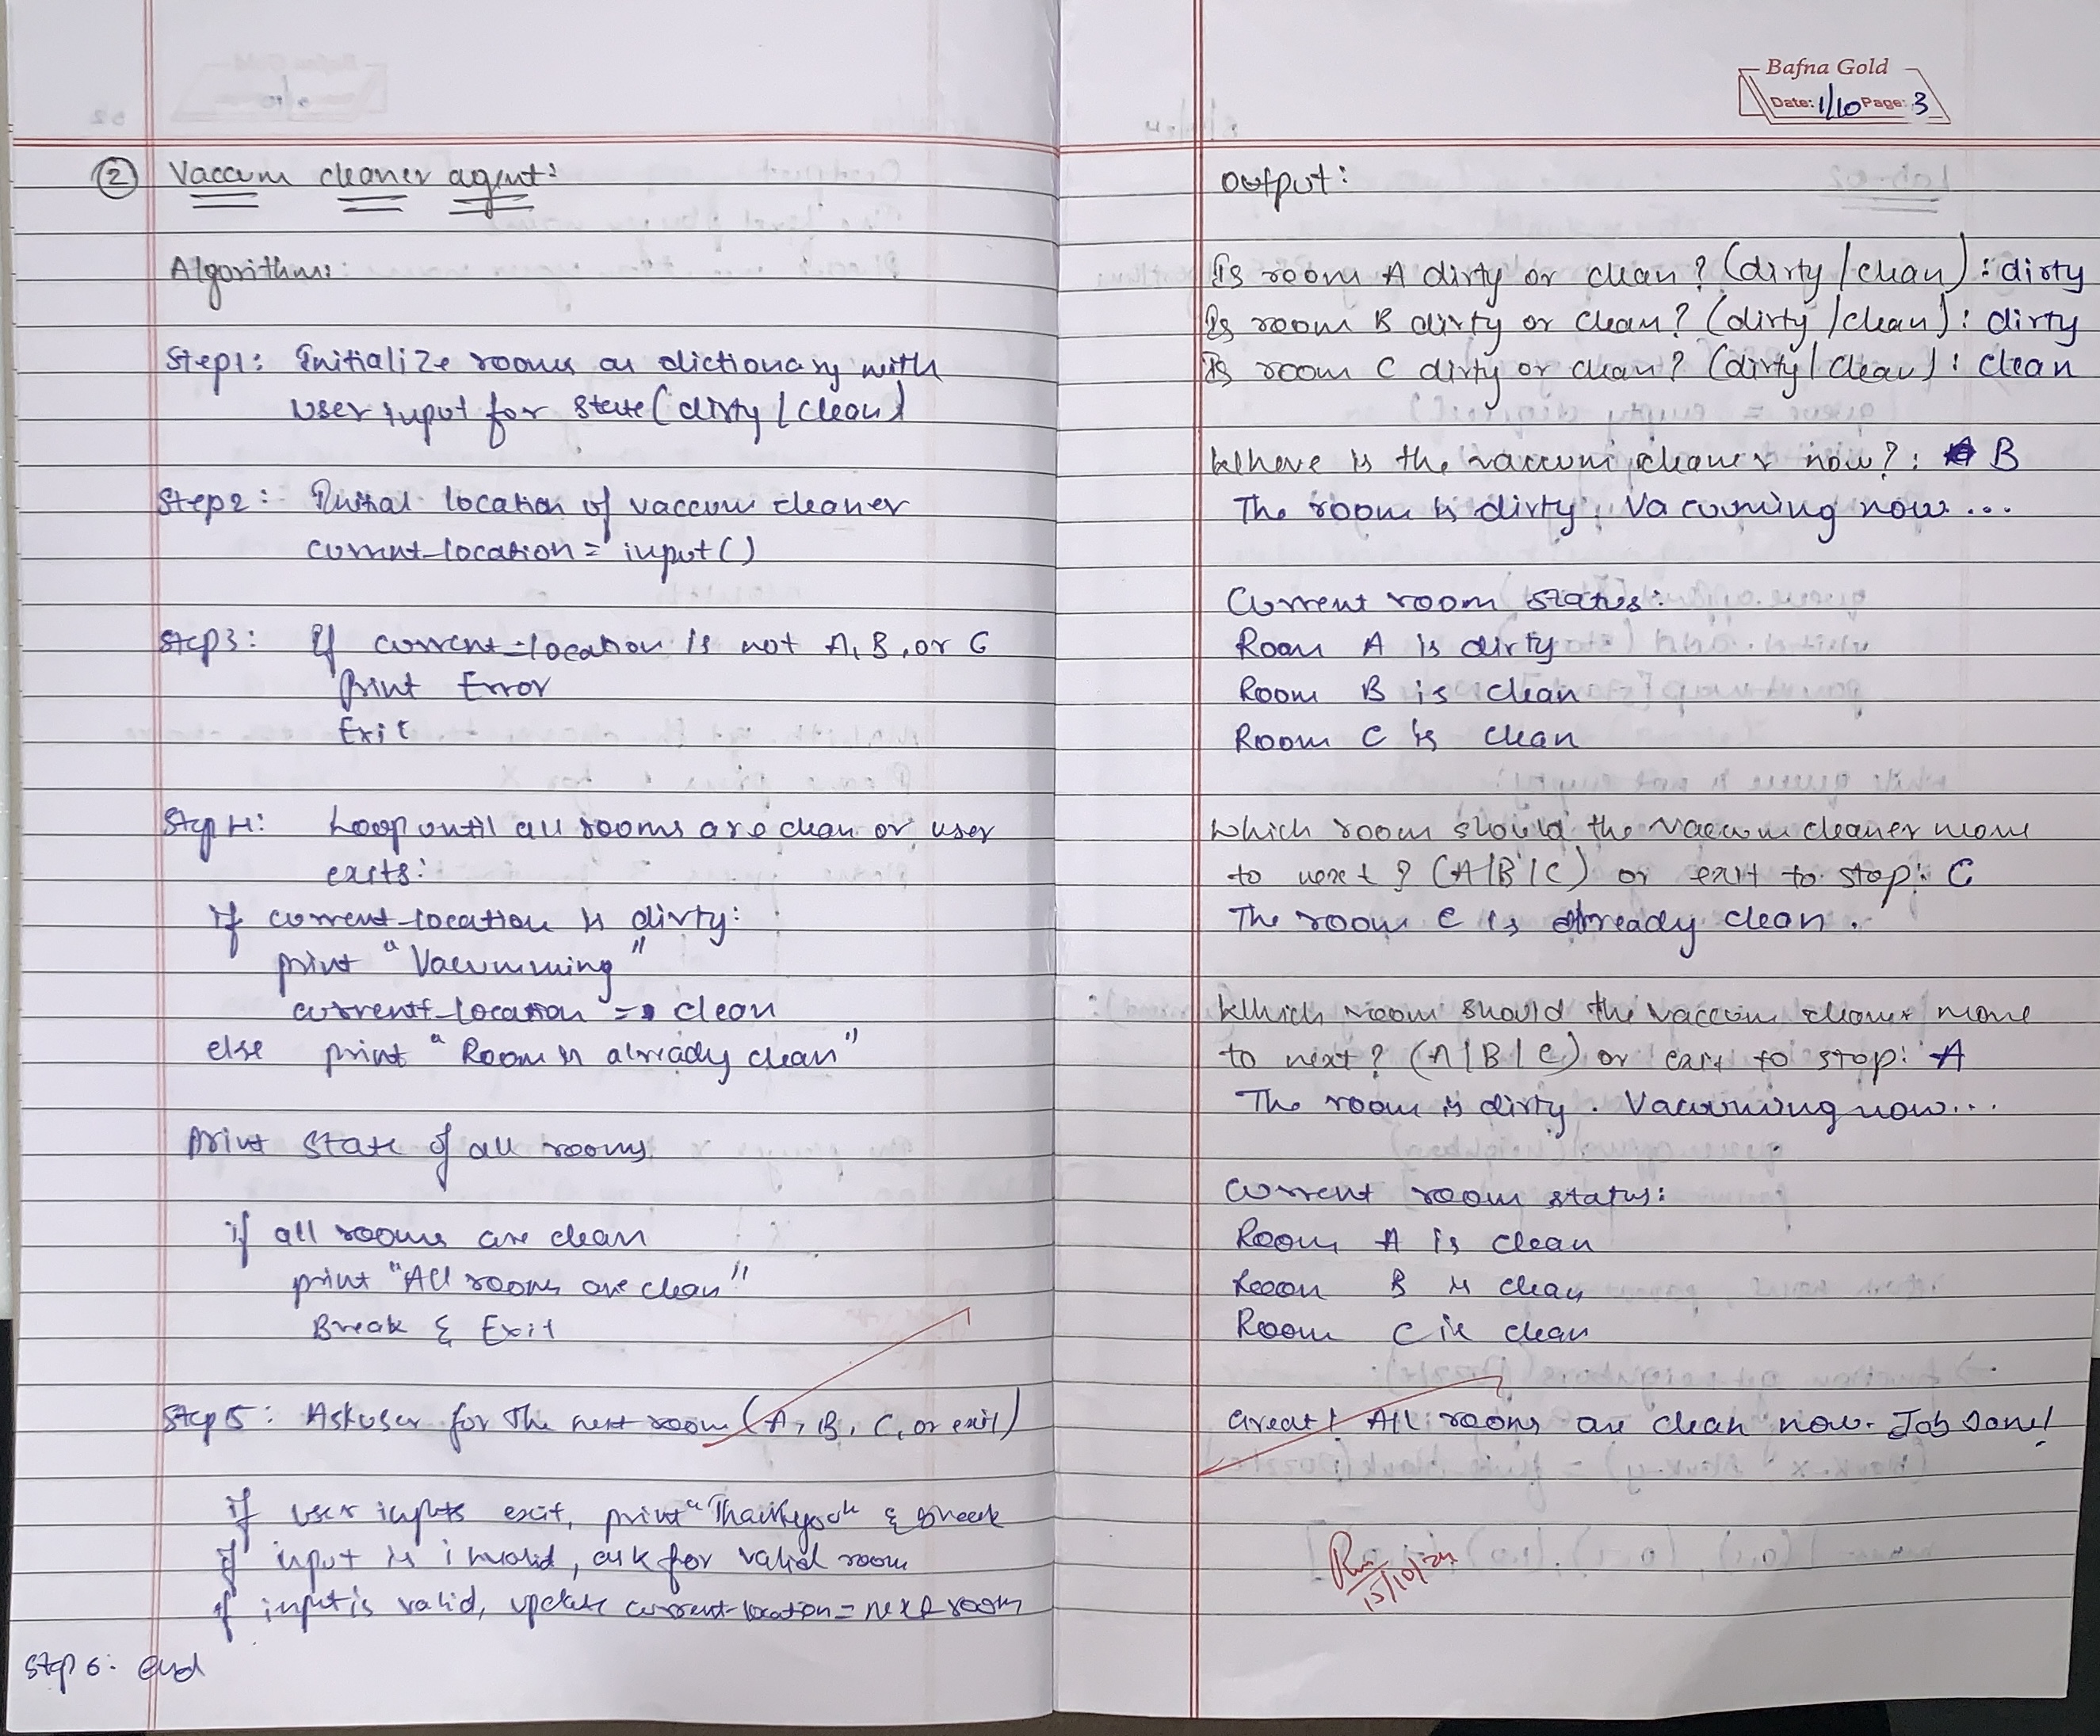 ② Vaccum cleaner agent:
Algorithm:
Step1: Initialize rooms as dictionary with
User input for state (dirty / clean)
Step2: Initial location of vaccum cleaner
current_location = input()
Step3: If current_location is not A, B, or C
Print Error
Exit
Step 4: Loop until all rooms are clean or user
exits:
if current_location is dirty:
print "Vacumming"
current_location = clean
else print "Room is already clean"
print state of all rooms
if all rooms are clean
print "All rooms are clean"
Break & Exit
Step 5: Ask user for the next room (A, B, C, or exit)
if user inputs exit, print "Thankyou" & break
if input is invalid, ask for valid room
if input is valid, update current_location = next room
Step 6: end
Bafna Gold
Date: 1/10 Page: 3
Output:
Is room A dirty or clean? (dirty / clean): dirty
Is room B dirty or clean? (dirty / clean): dirty
Is room C dirty or clean? (dirty / clean): clean
Where is the vaccum cleaner now?: B
The room is dirty. Vacuming now...
Current room status:
Room A is dirty
Room B is clean
Room C is clean
Which room should the vaccum cleaner move
to next? (A/B/C) or exit to stop: C
The room C is already clean.
Which room should the vaccum cleaner move
to next? (A/B/C) or exit to stop: A
The room is dirty. Vacuming now...
Current room status:
Room A is clean
Room B is clean
Room C is clean
Great! All rooms are clean now. Job done!
15/10/24